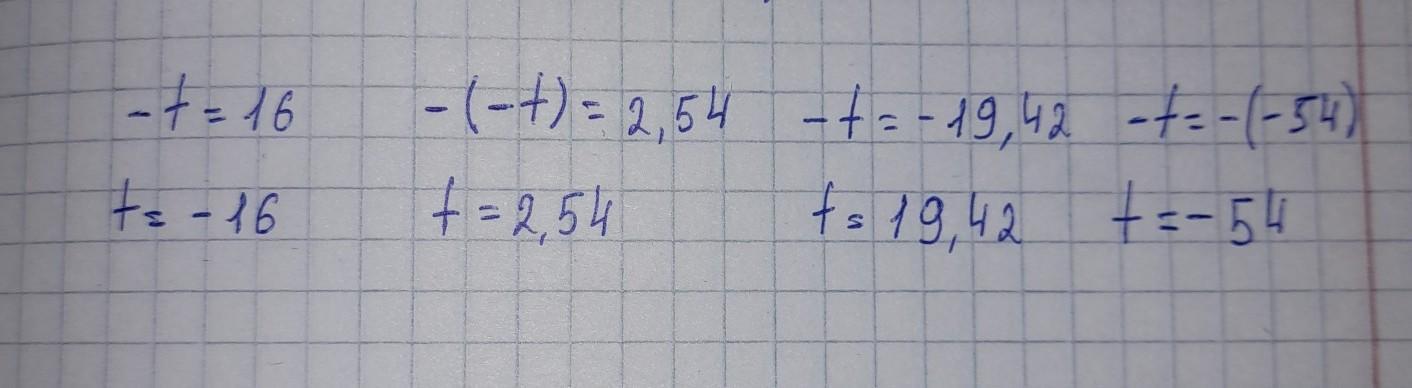 -t = 16 -(-t) = 2,54 -t = -19,42 -t = -(-54)
t = -16 t = 2,54 t = 19,42 t = -54